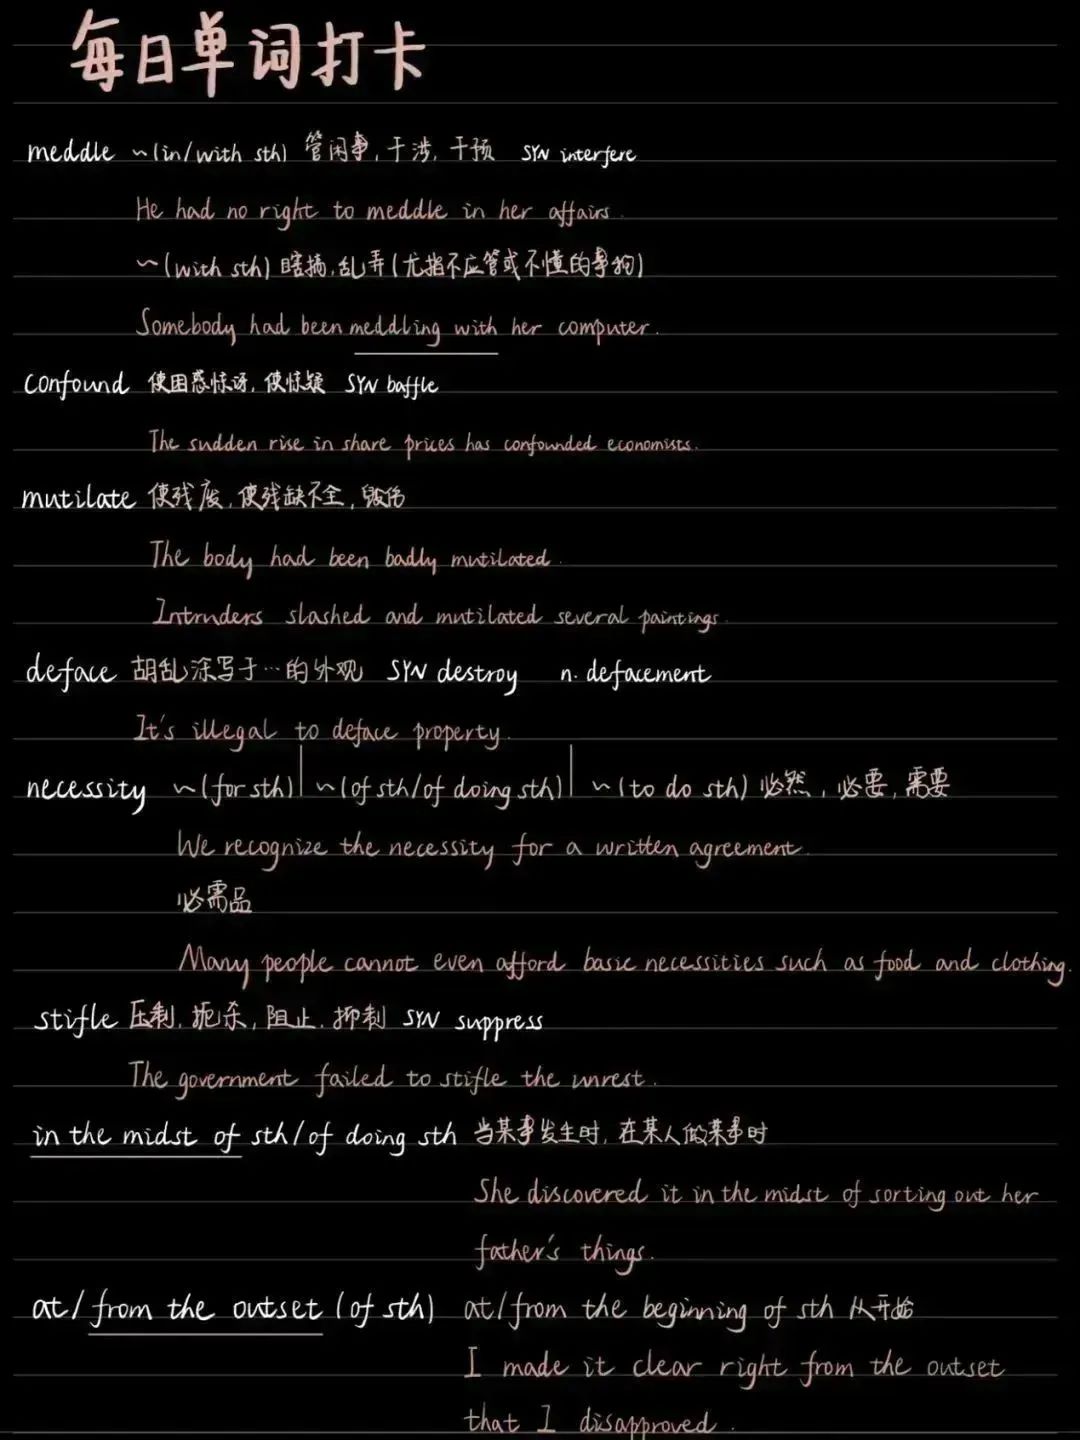 每日单词打卡
meddle ~(in/with sth) 管闲事,干涉,干预 SYN interfere
He had no right to meddle in her affairs.
~(with sth) 瞎搞,乱弄(尤指不应管或不懂的事物)
Somebody had been meddling with her computer.
confound 使困惑惊讶,使惊疑 SYN baffle
The sudden rise in share prices has confounded economists.
mutilate 使残废,使残缺不全,毁伤
The body had been badly mutilated.
Intruders slashed and mutilated several paintings.
deface 胡乱涂写于…的外观 SYN destroy n. defacement
It's illegal to deface property.
necessity ~(for sth)|~(of sth/of doing sth)|~(to do sth) 必然,必要,需要
We recognize the necessity for a written agreement.
必需品
Many people cannot even afford basic necessities such as food and clothing.
stifle 压制,扼杀,阻止,抑制 SYN suppress
The government failed to stifle the unrest.
in the midst of sth/of doing sth 当某事发生时,在某人做某事时
She discovered it in the midst of sorting out her
father's things.
at/from the outset (of sth) at/from the beginning of sth 从开始
I made it clear right from the outset
that I disapproved.